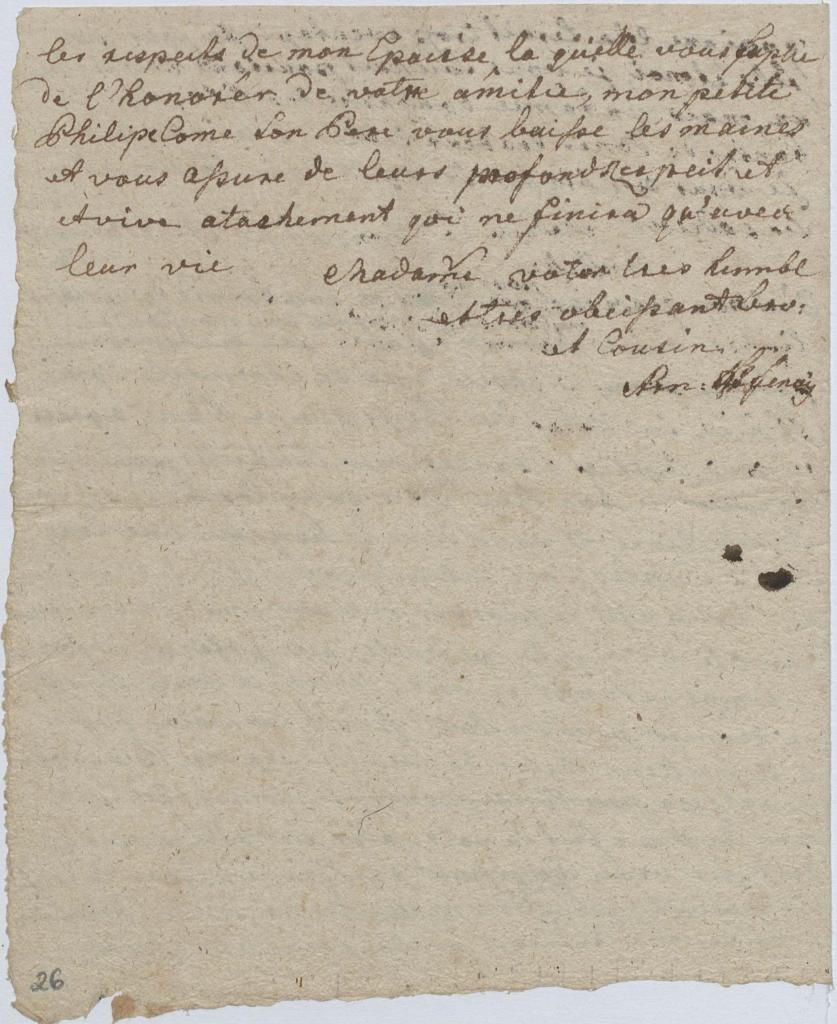 les respects de mon Epouse la qu'elle vous suplie
de l'honorér de votre amitié, mon petite
Philipe Come son Pere vous baisse les maines
et vous assure de leurs profonds respeit et
et vive atachement qui ne finira qu'avec
leur vie
Madame votre tres humbl
et tres obeissant
et Cousin
26